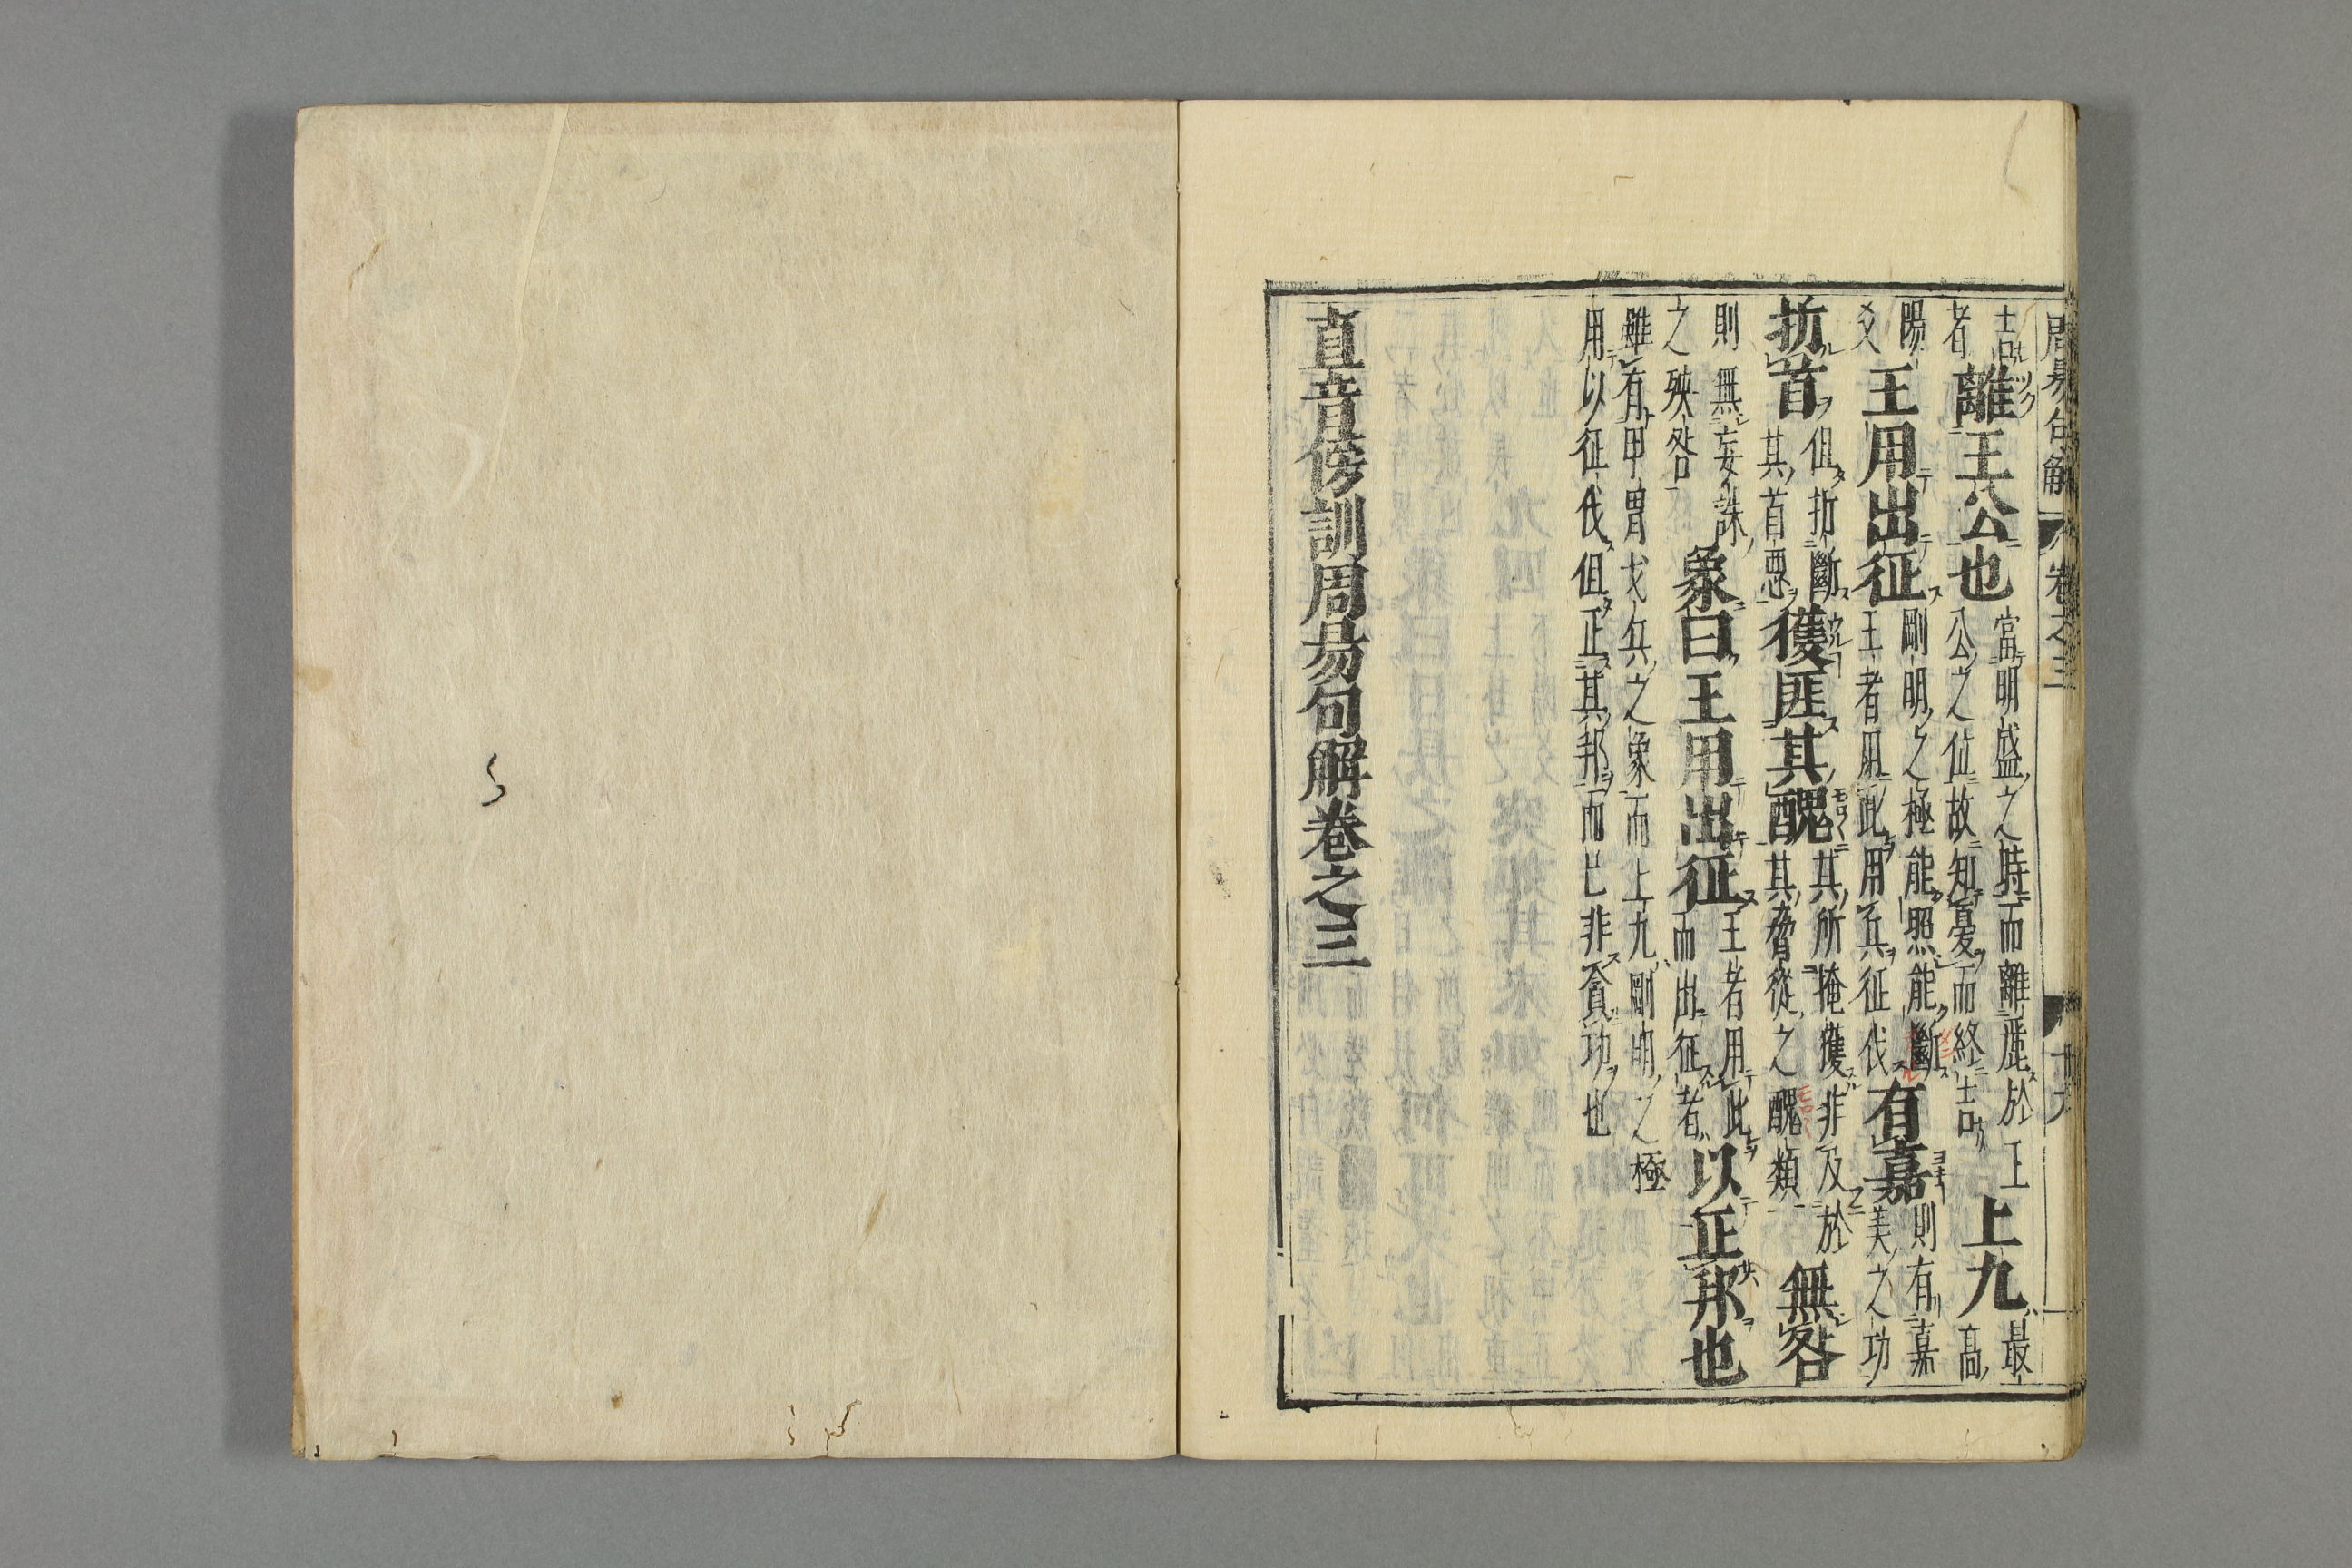 周易句解 卷之三 十九
吉離王公也當明盛之時而離麗於王
者公之位故知憂而終吉上九最
陽高
爻王用出征剛明之極能照能斷
王者用此用兵征伐有嘉則有嘉
美之功
折首但折斷
其首惡獲匪其醜其所掩獲非及於
其脅從之醜類無咎
則無妄誅
之殃咎象曰王用出征王者用此
而出征者以正邦也
雖有甲冑戈兵之象而上九剛明之極
用以征伐但正其邦而已非貪功也
直音傍訓周易句解卷之三